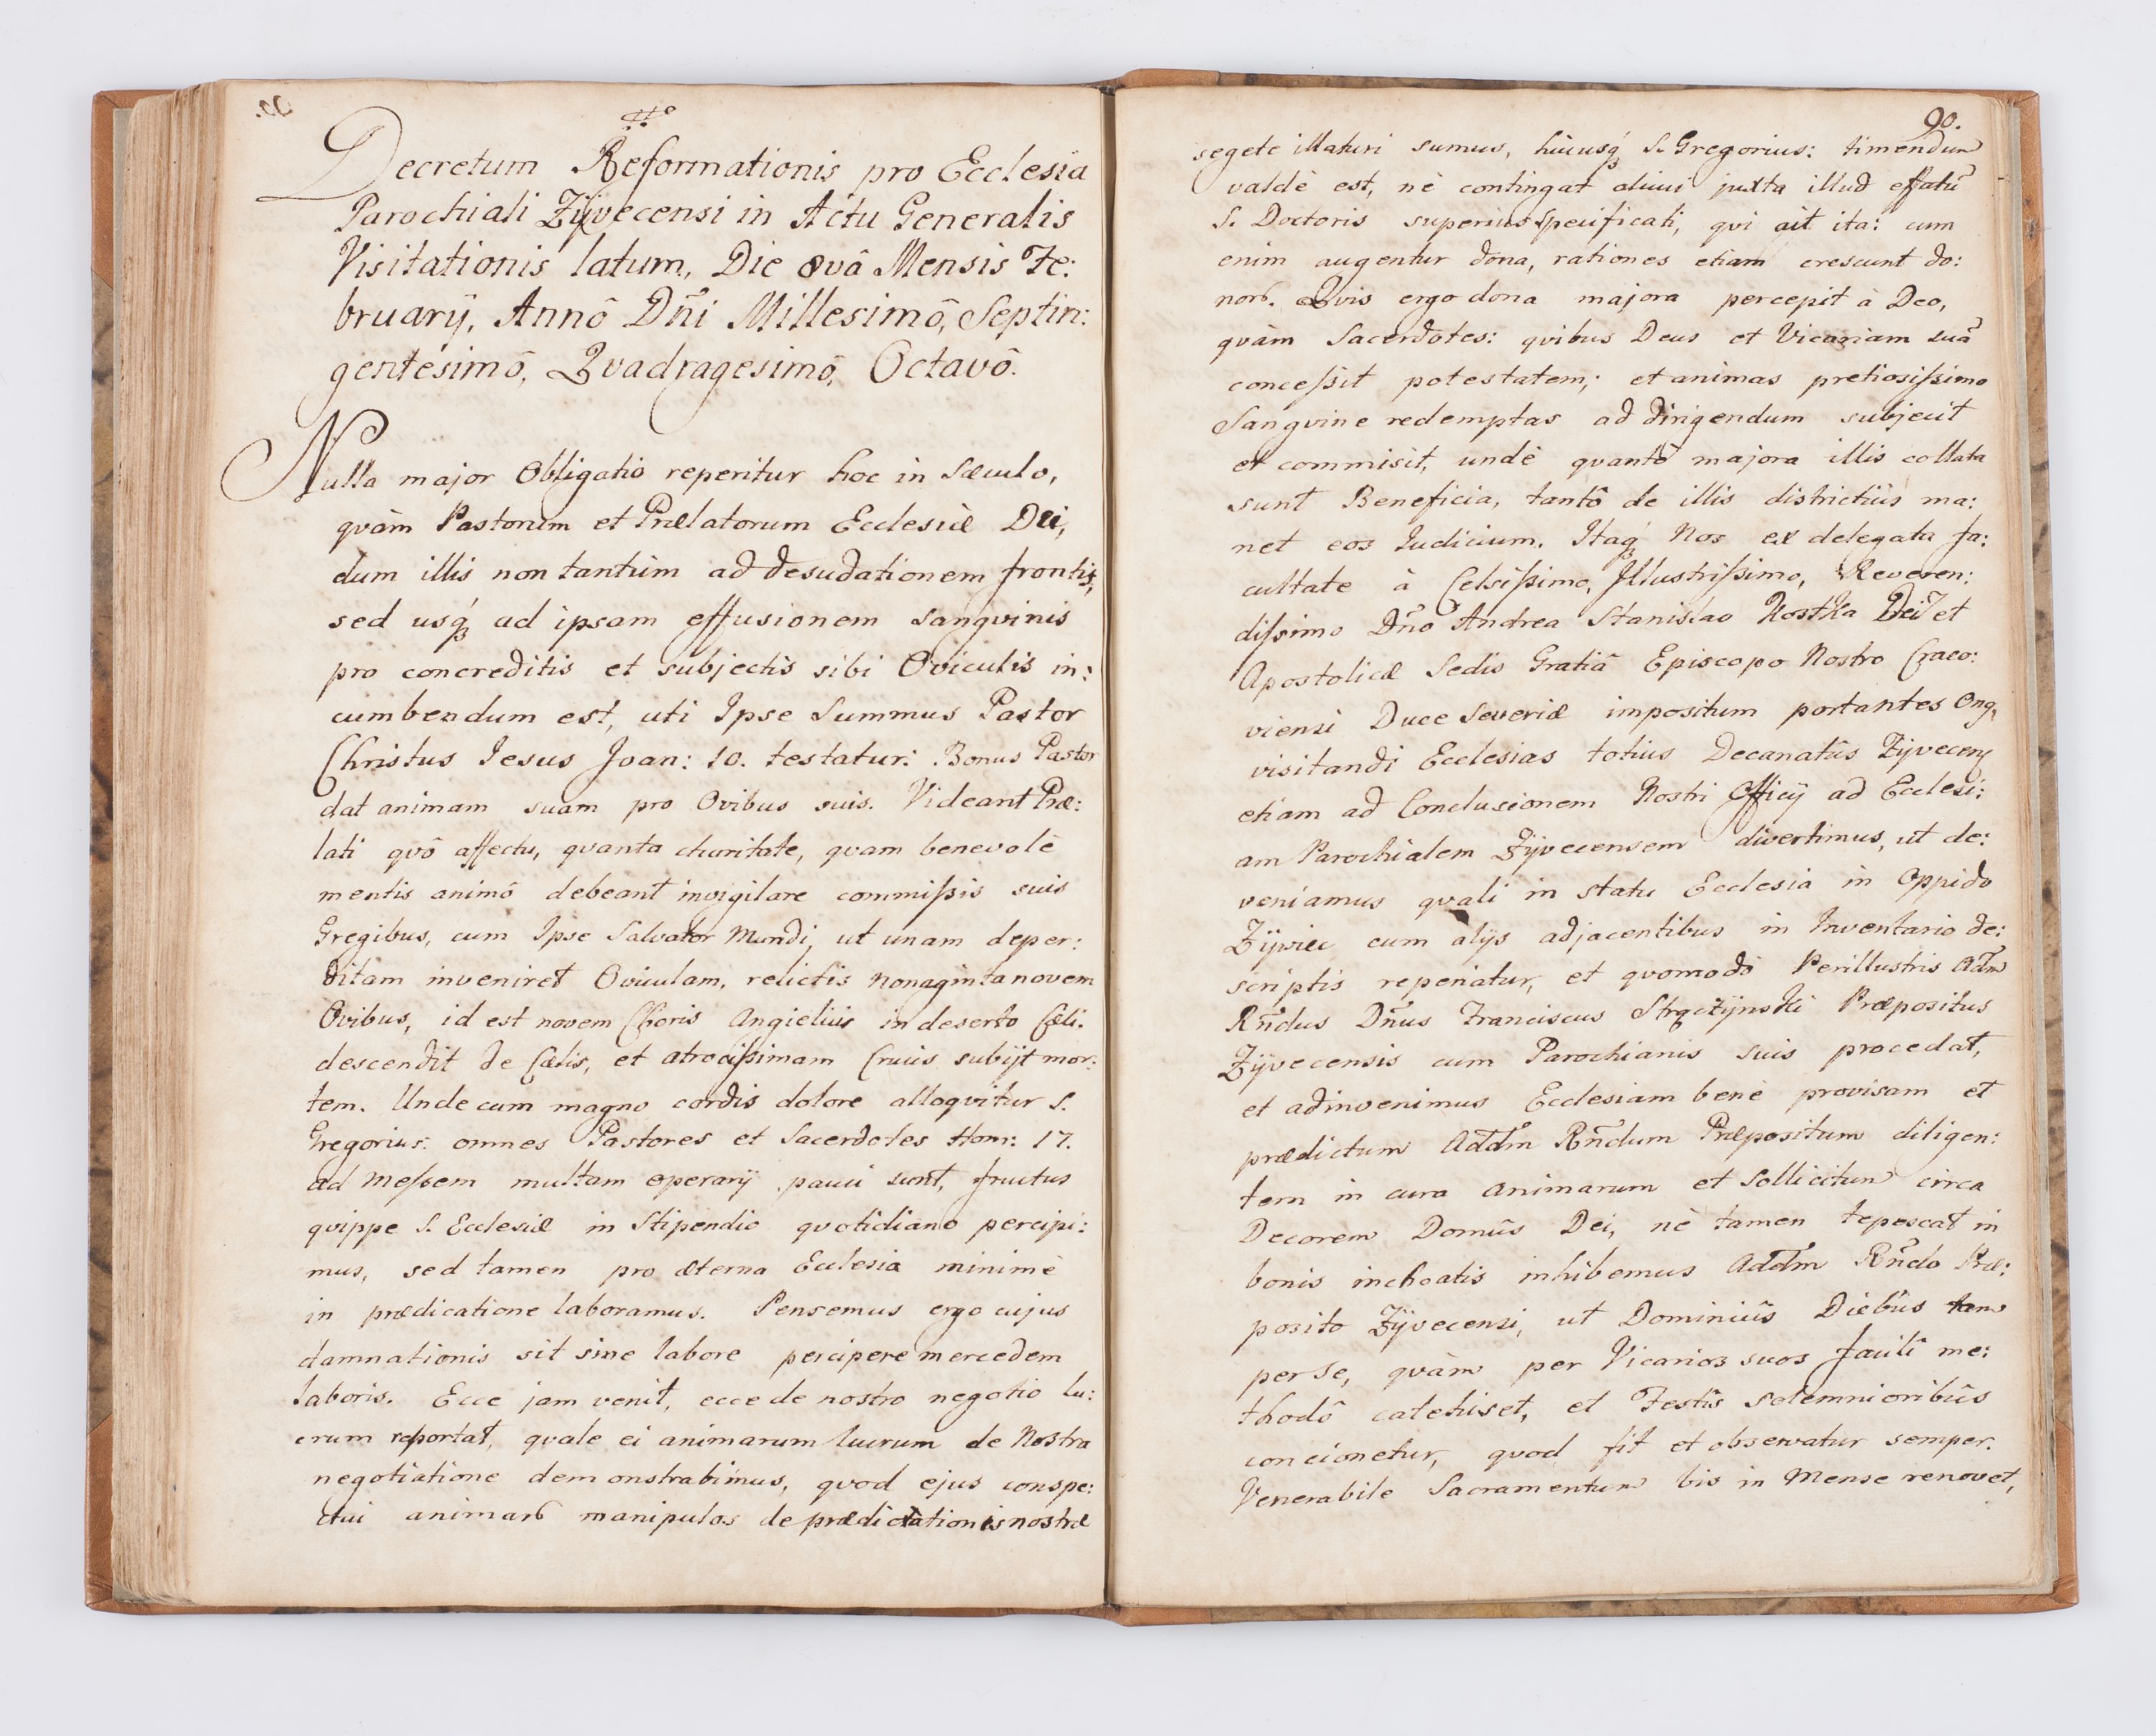 Decretum Reformationis pro Ecclesia
Parochiali Zÿvecensi in Actu Generalis
Visitationis latum, Die 8vâ Mensis Fe:
bruarÿ, Annô Dñi Millesimô, Septin:
gentesimô, Qvadragesimô, Octavô.
Nulla major Obligatio reperitur hoc in Sæculo,
qvàm Pastorum et Prælatorum Ecclesiæ Dei,
dum illis non tantùm ad desudationem frontis,
sed usq́ꝫ ad ipsam effusionem sangvinis
pro concreditis et subjectis sibi Oviculis in:
cumbendum est, uti Ipse Summus Pastor
Christus Iesus Joan: 10. testatur: Bonus Pastor
dat animam suam pro Ovibus suis. Videant Præ:
lati qvô affectu, qvanta charitate, qvam benevolè
mentis animô debeant invigilare commissis suis
Gregibus, cum Ipse Salvator Mundi, ut unam deper:
ditam inveniret Oviculam, relictis nonaginta novem
Ovibus, id est novem Choris Angielicis in deserto Cæli.
descendit de Cælis, et atrocissimam Crucis subijt mor:
tem. Unde cum magno cordis dolore alloqvitur S.
Gregorius: omnes Pastores et Sacerdotes Hom: 17.
ad Messem multam operarÿ pauci sunt, fructus
qvippe S. Ecclesiæ in Stipendio qvotidiano percipi:
mus, sed tamen pro æterna Ecclesia minimè
in prædicatione laboramus. Pensemus ergo cujus
damnationis sit sine labore percipere mercedem
laboris. Ecce jam venit, ecce de nostro negotio lu:
crum reportat, qvale ei animarum lucrum de Nostra
negotiatione demonstrabimus, qvod ejus conspe:
ctui animarꝝ manipulos de prædicationis nostræ
90.
segete illaturi sumus, hucusq́ꝫ S. Gregorius: timendum
valdè est, nè contingat alicui juxta illud effatũ
S. Doctoris superius specificati, qvi ait ita: cum
enim augentur dona, rationes etiam crescunt do:
norꝝ. Qvis ergo dona majora percepit à Deo,
qvàm Sacerdotes: qvibus Deus et Vicariam suã
concessit potestatem; et animas pretiosissimo
Sangvine redemptas ad dirigendum subjecit
et commisit, undè qvantô majora illis collata
sunt Beneficia, tantô de illis districtiùs ma:
net eos Iudicium. Itaq́ꝫ Nos ex delegata fa:
cultate à Celsissimo, Illustrissimo, Reveren:
dissimo Dño Andrea Stanislao Kostka Dei et
Apostolicæ Sedis Gratiâ Episcopo Nostro Craco:
viensi Duce Severiæ impositum portantes Onꝯ
visitandi Ecclesias totius Decanatûs Zÿvecen
etiam ad Conclusionem Nostri Officÿ ad Ecclesi:
am Parochialem Zÿvecensem divertimus, ut de:
veniamus qvali in statu Ecclesia in Oppido
Zÿwiec cum alÿs adjacentibus in Inventario de:
scriptis reperiatur, et qvomodò Perillustris Adm̃
Rñdus Dñus Franciscus Strączÿnski Præpositus
Zÿvecensis cum Parochianis suis procedat,
et adinvenimus Ecclesiam benè provisam et
prædictum Addm̃ Rñdum Præpositum diligen:
tem in cura animarum et Sollicitum circa
Decorem Domûs Dei, nè tamen tepescat in
bonis inchoatis inhibemus Addm̃ Rñdo Præ:
posito Zÿvecensi, ut Dominicîs Diebûs tam
per se, qvàm per Vicarios suos facilî me:
thodô catehiset, et Festîs solemnioribûs
concionetur, qvod fit et observatur semper.
Venerabile Sacramentum bis in Mense renovet,